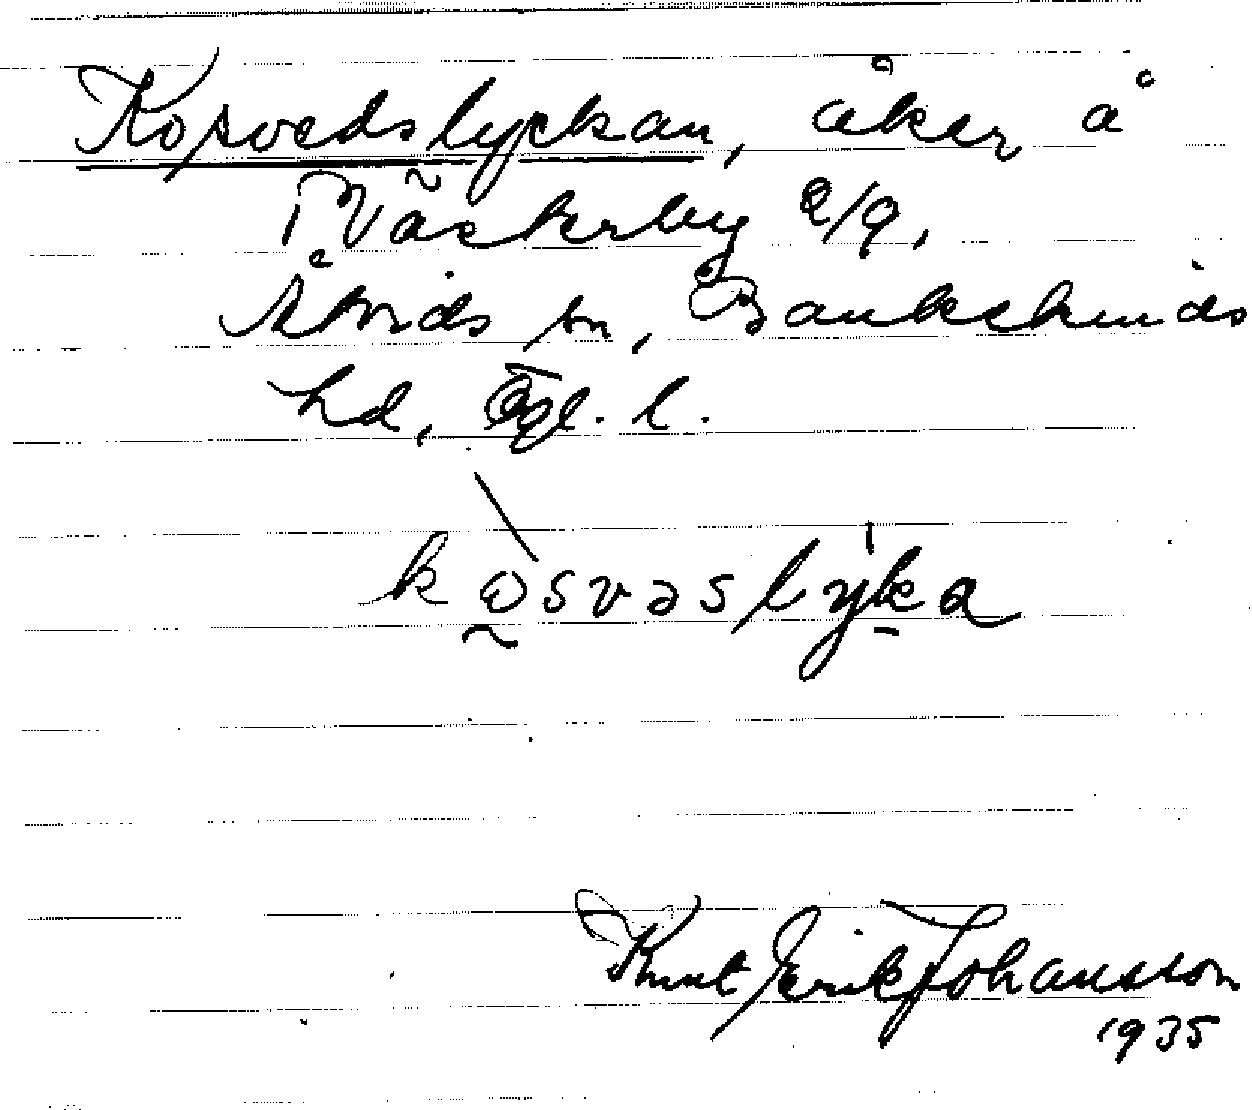 Korsvedslyckan, åker å
Väckerby 2/9,
Åtvids sn, Bankekinds
hd, Ögl. l.
kɷsvəslyka
Knut Erik Johansson
1935